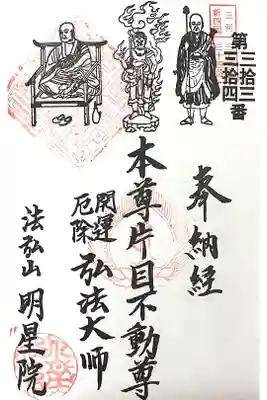 第三拾三
三拾四番
奉納経
本尊片目不動尊
開運
厄除
弘法大師
法弘山 明星院